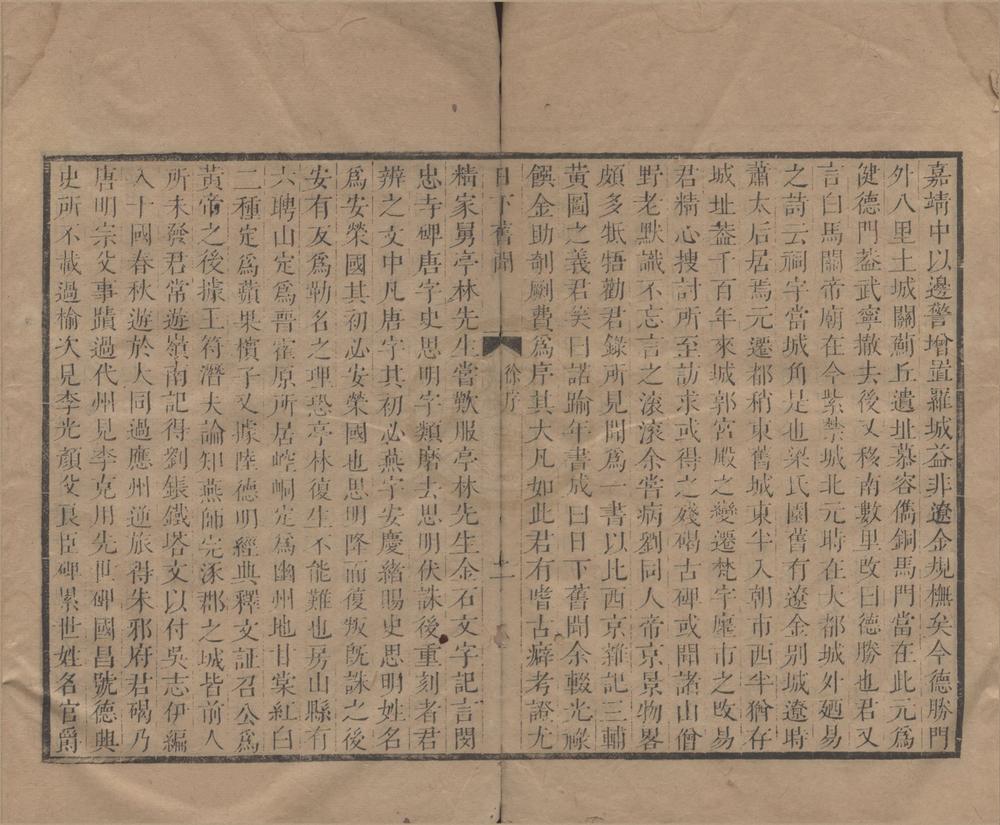 嘉靖中以邊警增置羅城益非遼金規橅矣今德勝門
外八里土城關薊丘遺址慕容儁銅馬門當在此元爲
健德門葢武寧撤去後又移南數里改曰德勝也君又
言白馬關帝廟在今紫禁城北元時在大都城外廼易
之詩云祠宇當城角是也梁氏園舊有遼金别城遼時
蕭太后居焉元遷都稍東舊城東半入朝市西半猶存
城址葢千百年來城郭宮殿之變遷梵宇廛市之改易
君精心搜討所至訪求或得之殘碣古碑或聞諸山僧
野老默識不忘言之滚滚余嘗病劉同人帝京景物畧
頗多牴牾勸君錄所見聞爲一書以比西京雜記三輔
黃圖之義君矣曰諾踰年書成曰日下舊聞余輟光祿
饌金助剞劂費爲序其大凡如此君有嗜古癖考證尤
日下舊聞 徐序 二
精家舅亭林先生嘗歎服亭林先生金石文字記言閔
忠寺碑唐字史思明字類磨去思明伏誅後重刻者君
辨之文中凡唐字其初必燕字安慶緒賜史思明姓名
爲安榮國其初必安榮國也思明降而復叛旣誅之後
安有反爲勒名之理恐亭林復生不能難也房山縣有
六聘山定爲晉霍原所居崆峒定爲幽州地甘棠紅白
二種定爲蘋果檳子又據陸德明經典釋文証召公爲
黃帝之後據王符潛夫論知燕師完涿郡之城皆前人
所未發君常遊嶺南記得劉鋹鐵塔文以付吳志伊編
入十國春秋遊於大同過應州逆旅得朱邪府君碣乃
唐明宗父事蹟過代州見李克用先世碑國昌號德興
史所不載過榆次見李光顏父良臣碑累世姓名官爵